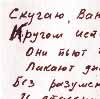 Скучаю, Ван
Кругом ист
Они пьют
Лакают дн
Без разумн